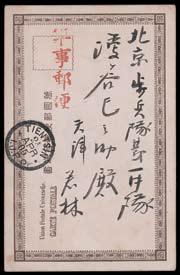 北京歩兵隊第一中隊
凌谷巳之助殿
天津
若林
軍事郵便
Union Postale Universelle.
CARTE POSTALE
TIENTSIN